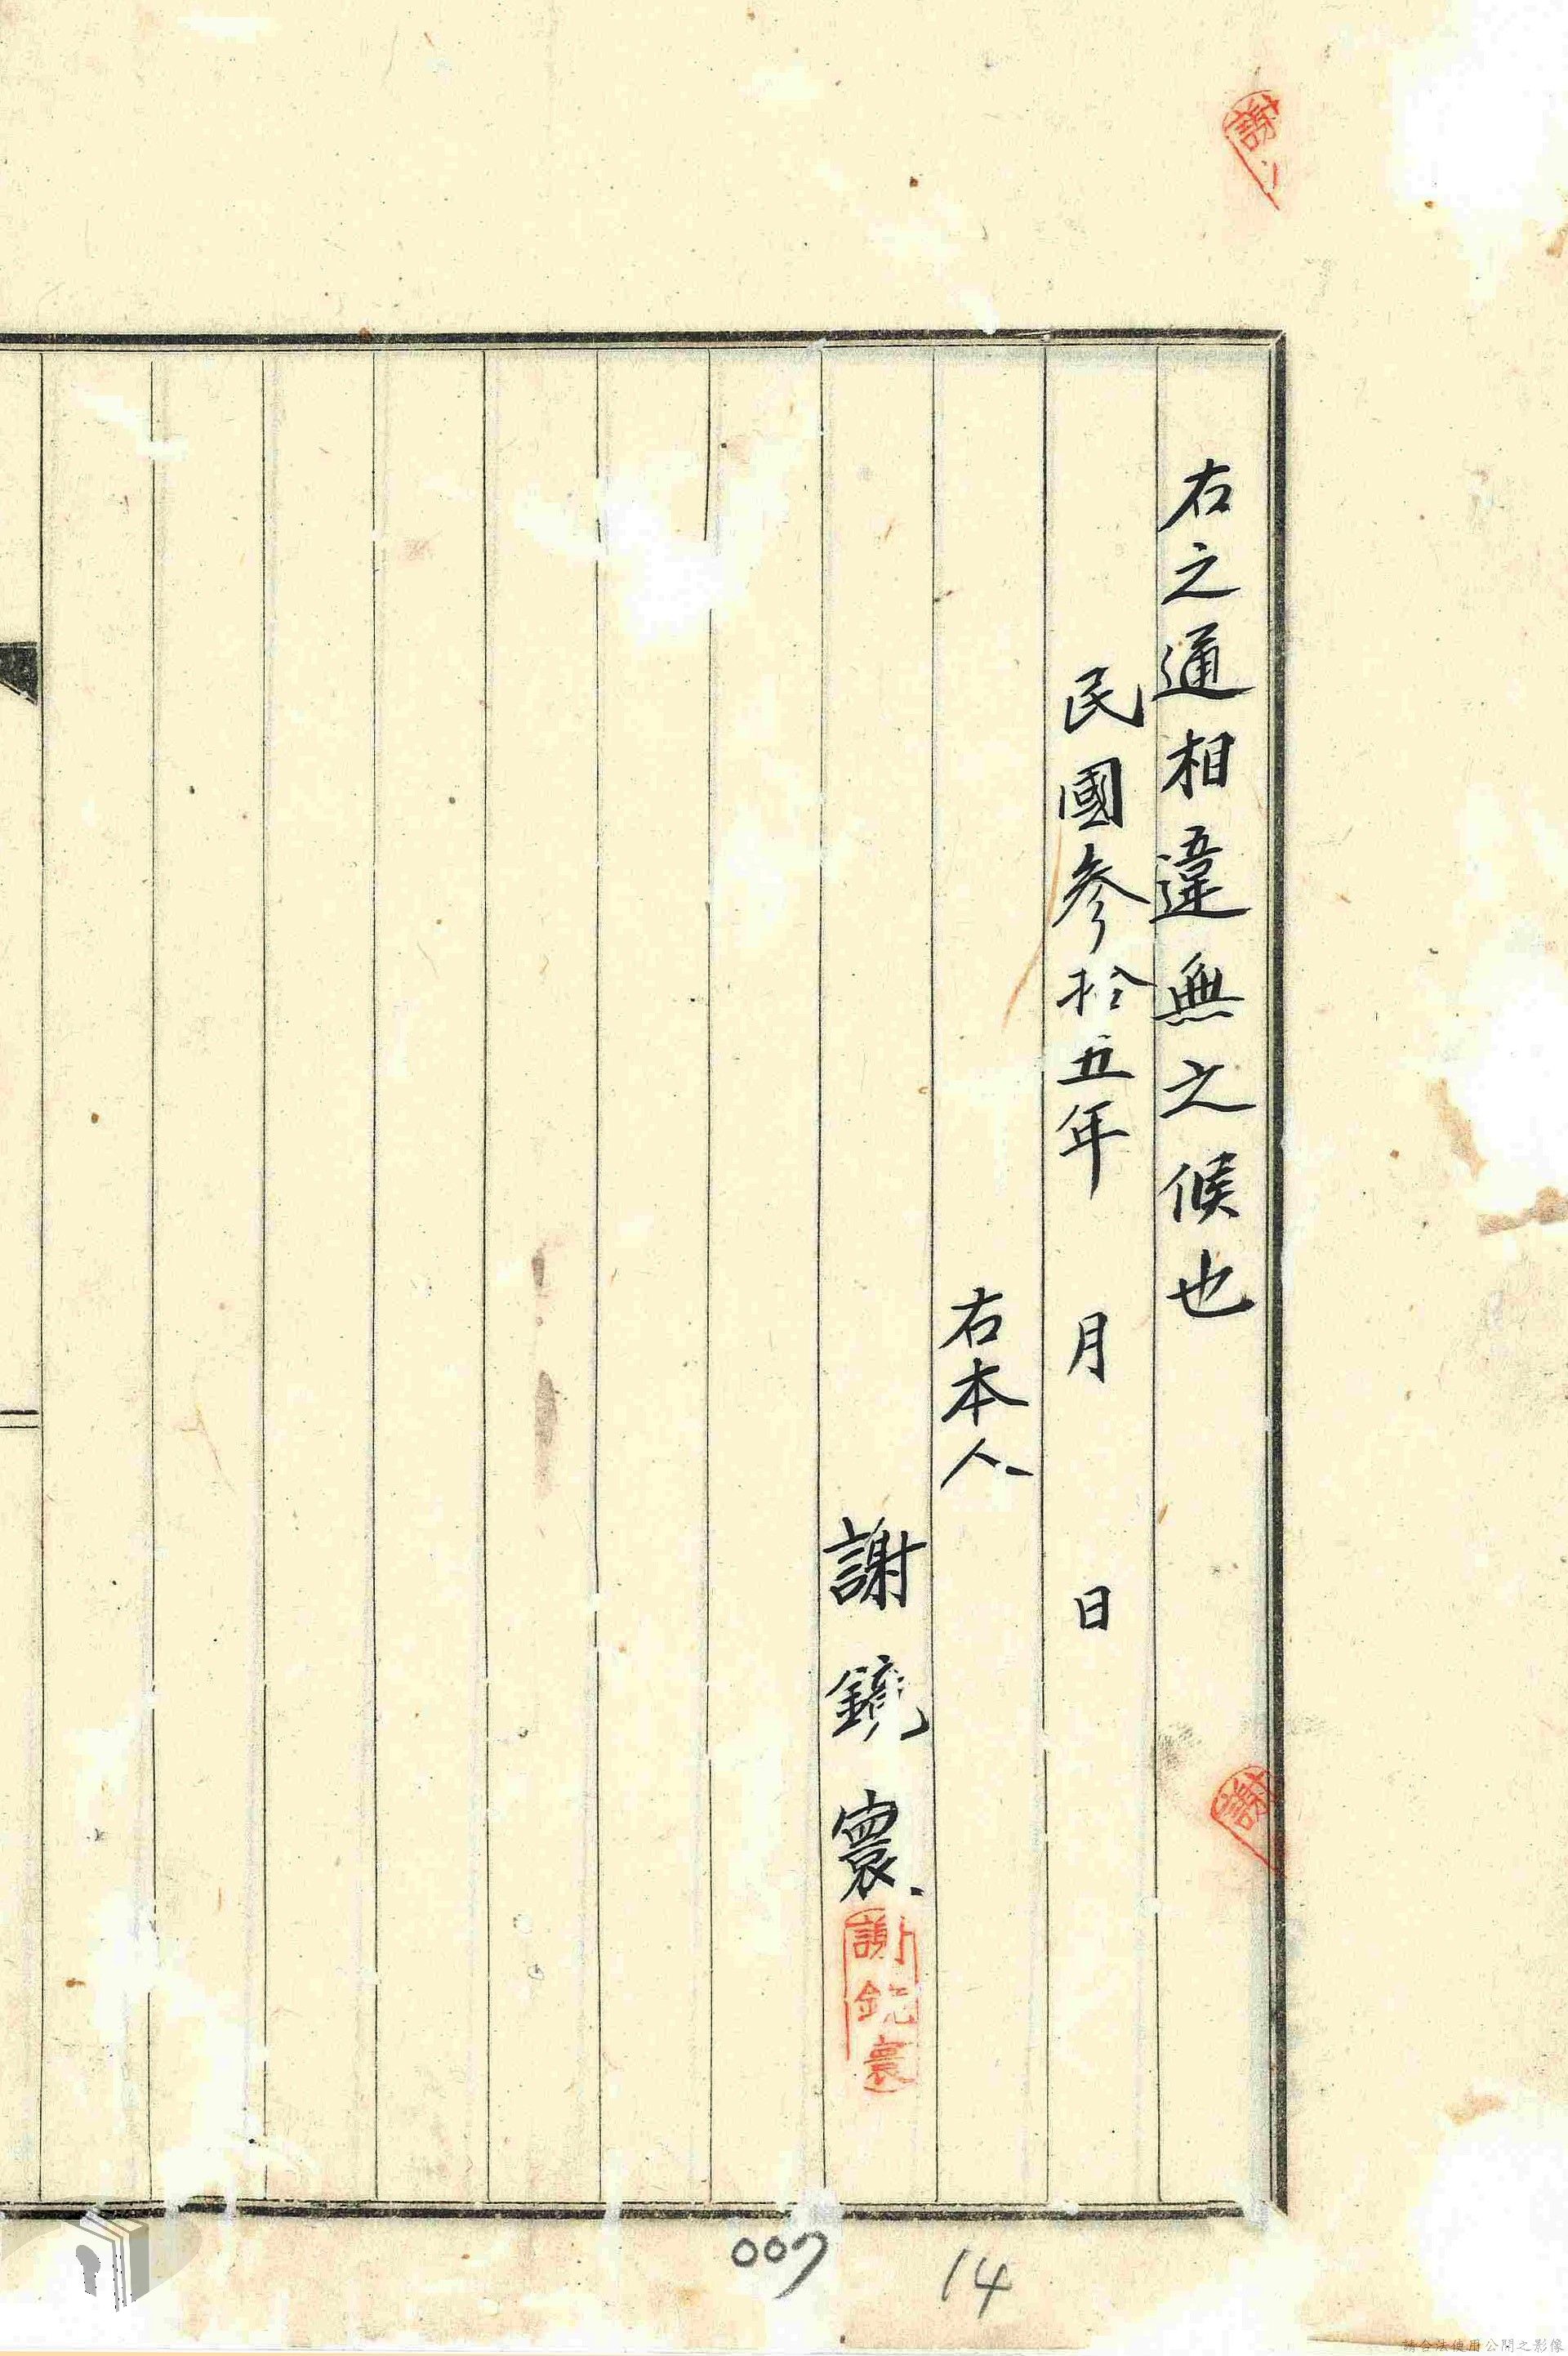 右之通相違無之候也
民國參拾五年　月　日
右本人
謝鏡寰
謝鏡寰
謝
謝
007
14
請合法使用公開之影像